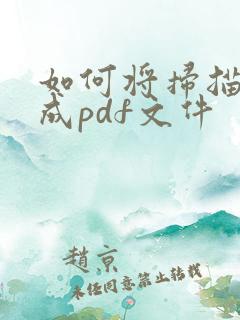 如何将掃描
成pdf文件
趙京
未经同意禁止转载